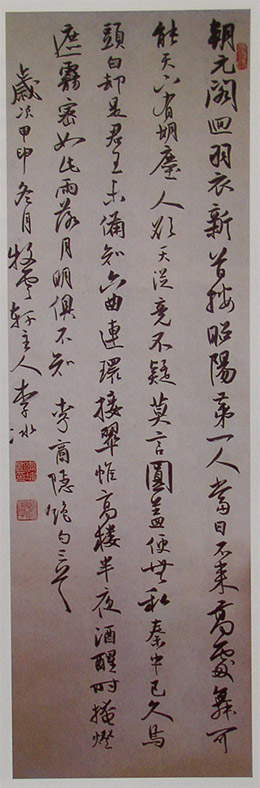 朝元閣迥羽衣新首按昭陽第一人當日不来高處舞可
能天下有胡塵人欲天從竟不疑莫言圓盖便無私秦中已久烏
頭白却是君王未備知六曲連環接翠帷高樓半夜酒醒時掩燈
遮霧密如此雨落月明俱不知 李商隱絶句三首
歲次甲申冬月牧雲軒主人李冰